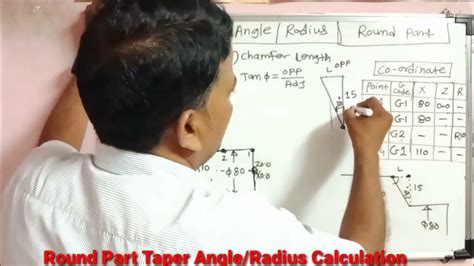 Angle / Radius
Round Part
) Chamfer Length
Tan ϕ = OPP / Adj
L OPP
15
Co-ordinate
Point G Code X Z R
G1 80 0.0 -
G1 80 - -
G2 - - R10
G1 110 - -
2 1
ϕ80
L
15
ϕ80
Round Part Taper Angle/Radius Calculation